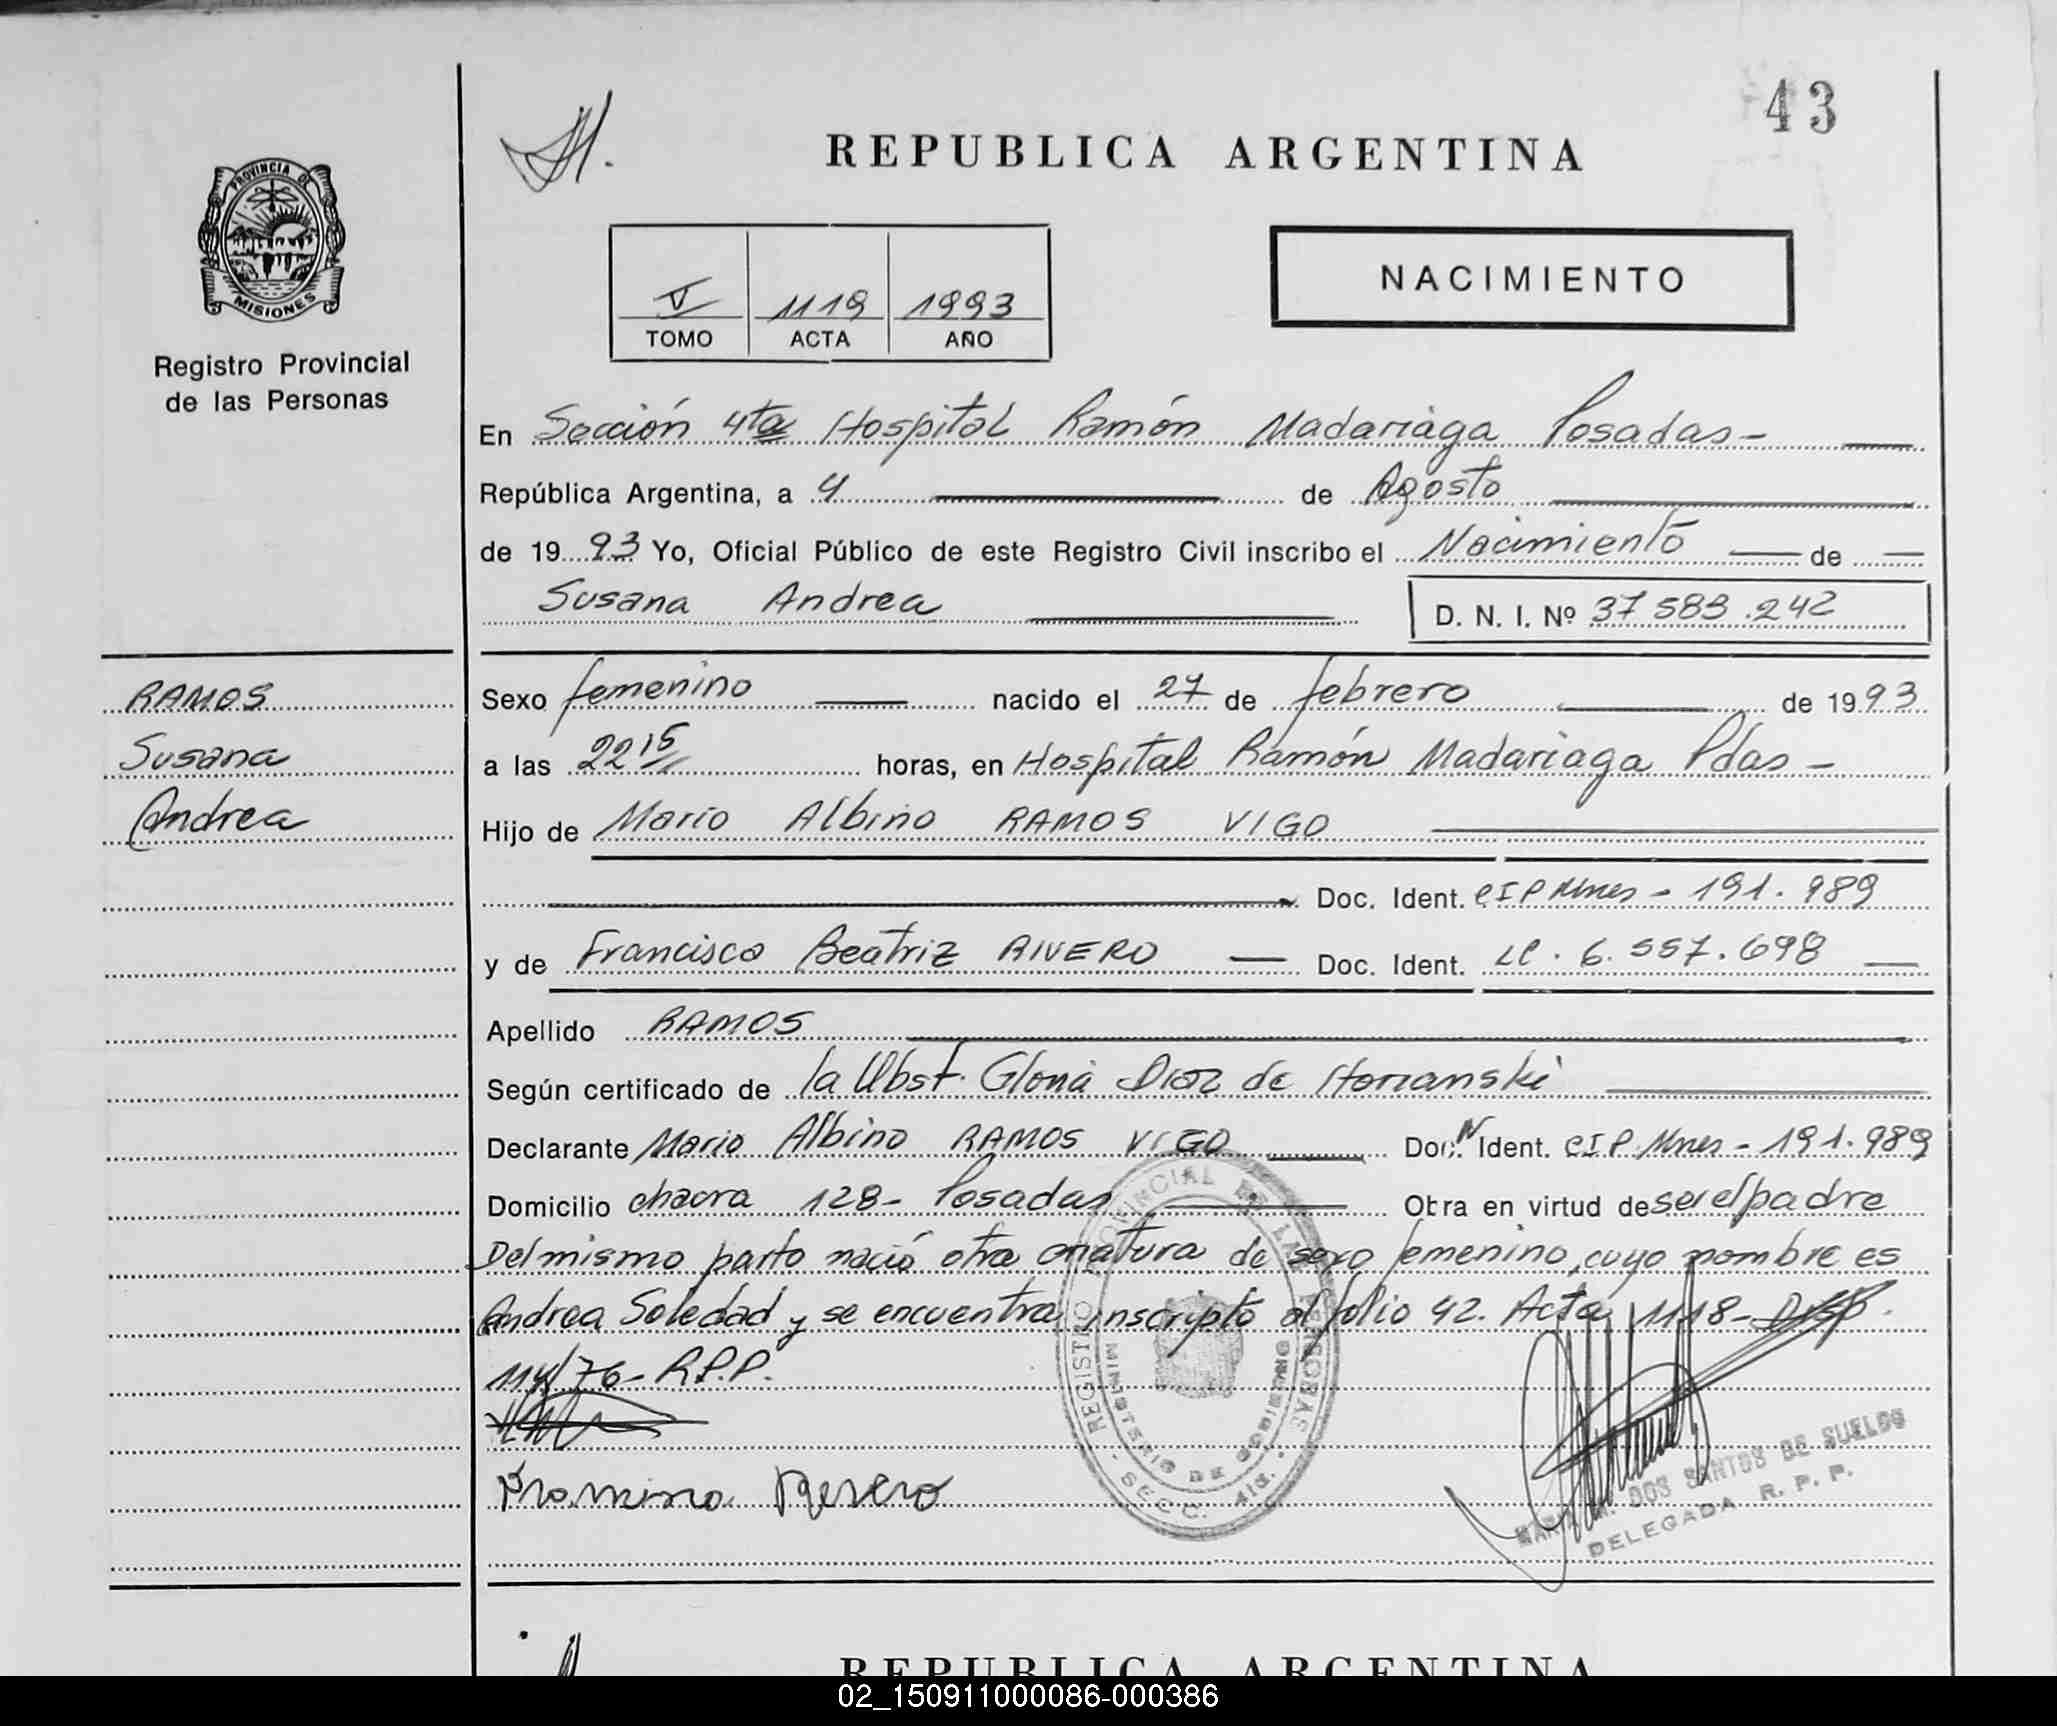 43
REPUBLICA ARGENTINA
PROVINCIA DE
MISIONES
Registro Provincial
de las Personas
V 1119 1993
TOMO ACTA AÑO
NACIMIENTO
En Sección 4ta Hospital Ramón Madariaga Posadas-
República Argentina, a 4 de Agosto
de 1993 Yo, Oficial Público de este Registro Civil inscribo el Nacimiento de
Susana Andrea D. N. I. Nº 37 583.242
RAMOS
Susana
Andrea
Sexo femenino nacido el 27 de febrero de 1993
a las 2215 horas, en Hospital Ramón Madariaga Pdas-
Hijo de Mario Albino RAMOS VIGO
Doc. Ident. CIP Mnes - 191.989
y de Francisca Beatriz RIVERO Doc. Ident. LC. 6.557.698
Apellido RAMOS
Según certificado de la Obst. Gloria Diaz de
Declarante Mario Albino RAMOS VIGO Doc. Ident. CIP. Mnes - 191.989
Domicilio chacra 128- Posadas Obra en virtud de ser el padre
Del mismo parto nació otra criatura de sexo femenino, cuyo nombre es
Andrea Soledad y se encuentra inscripto al folio 42. Acta 1118- Disp.
114/76- R.P.P.
REGISTRO PROVINCIAL DE LAS PERSONAS
MINISTERIO DE GOBIERNO
DOS SANTOS DE SUELDO
DELEGADA R. P. P.
REPUBLICA ARGENTINA
02_150911000086-000386